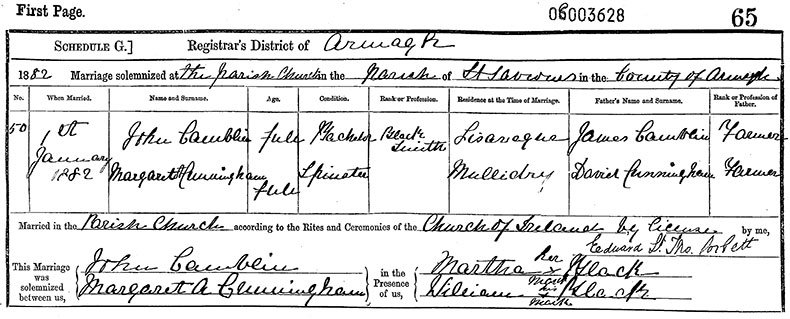 First Page. 06003628 65
SCHEDULE G.] Registrar's District of Armagh
1882 Marriage solemnized at the Parish Church in the Parish of St Saviours in the County of Armagh
No. When Married. Name and Surname. Age. Condition. Rank or Profession. Residence at the Time of Marriage. Father's Name and Surname. Rank or Profession of Father.
50 1st January 1882 John Camblin full Bachelor Black Smith Lisavague James Camblin Farmer
Margaret A Cunningham full Spinster Mullidry David Cunningham Farmer
Married in the Parish Church according to the Rites and Ceremonies of the Church of Ireland by License by me,
Edward St. Tho.
This Marriage was solemnized between us, John Camblin in the Presence of us, Martha her x Mark Black
Margaret A Cunningham William his x Mark Black